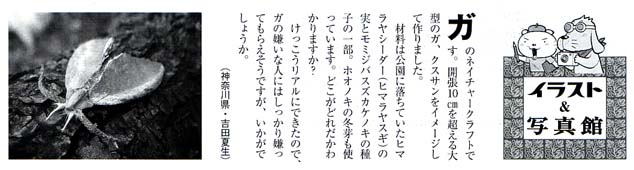 イラスト
&
写真館
ガのネイチャークラフトで
す。開張10㎝を超える大
型のガ、クスサンをイメージし
て作りました。
材料は公園に落ちていたヒマ
ラヤシーダー(ヒマラヤスギ)の
実とモミジバスズカケノキの種
子の一部。ホオノキの冬芽も使
っています。どこがどれだかわ
かりますか?
けっこうリアルにできたので、
ガの嫌いな人にはしっかり嫌っ
てもらえそうですが、いかがで
しょうか。
(神奈川県・吉田夏生)